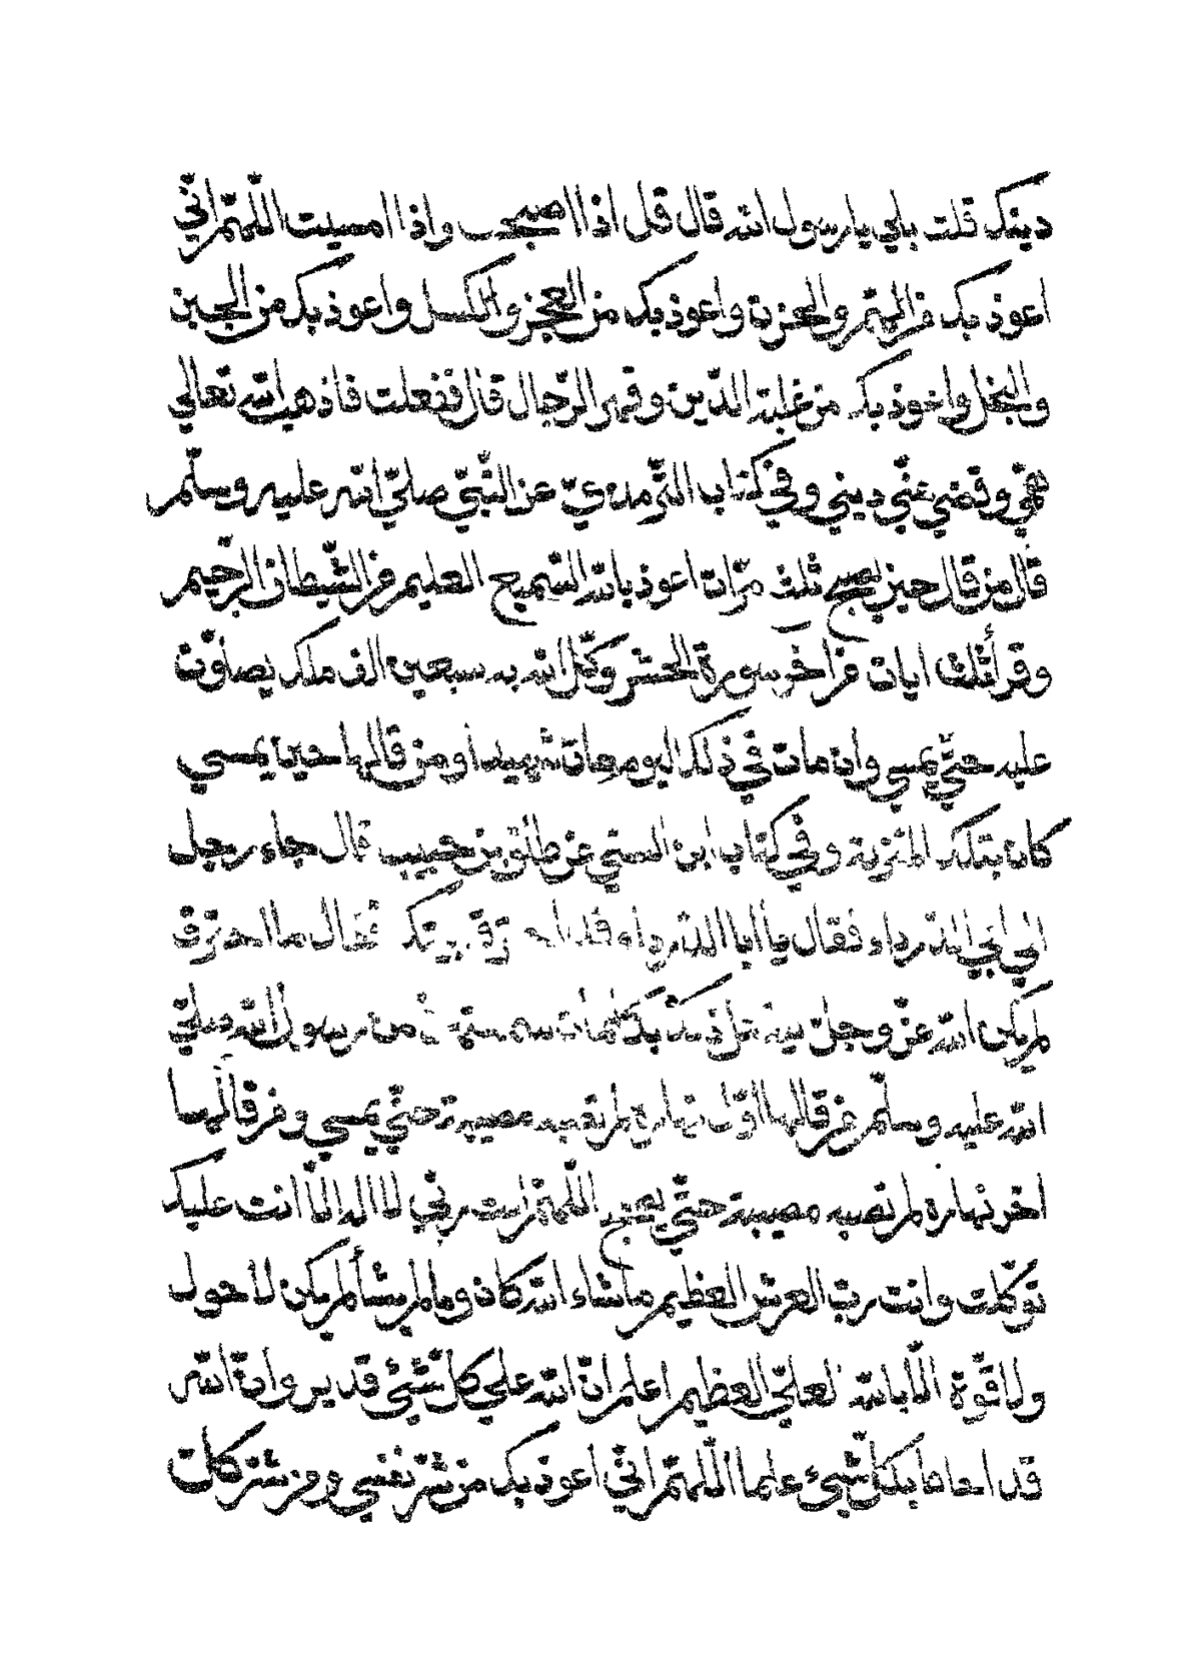 دينك قلت بلي يا رسول الله قال قل اذا اصبحت واذا امسيت اللّهمّ انّي
اعوذ بك من الهمّ والحزن واعوذ بك من العجز والكسل واعوذ بك من الجبن
والبخل واعوذ بك من غلبة الدّين وقهر الرّجال قال ففعلت فاذهب الله تعالي
همّي وقضي عنّي ديني وفي كتاب التّرمذيّ عن النّبيّ صلّي الله عليه وسلّم
قال من قال حين يصبح ثلث مرّات اعوذ بالله السّميع العليم من الشّيطان الرّجيم
وقرأ ثلث ايات من اخر سورة الحشر وكّل الله به سبعين الف ملك يصلّون
عليه حتّي يمسي وان مات في ذلك اليوم مات شهيدا ومن قالها حين يمسي
كان بتلك المنزلة وفي كتاب ابن السنّي عن طلق بن حبيب قال جاء رجل
الي ابي الدّرداء فقال يا ابا الدّرداء قد احترق بيتك فقال ما احترق
لم يكن الله عزّ وجلّ ليفعل ذلك بكلمات سمعتهنّ من رسول الله صلّي
الله عليه وسلّم من قالها اوّل نهاره لم تصبه مصيبة حتّي يمسي ومن قالها
اخر نهاره لم تصبه مصيبة حتّي يصبح اللّهمّ انت ربّي لا اله الّا انت عليك
توكّلت وانت ربّ العرش العظيم ما شاء الله كان وما لم يشأ لم يكن لا حول
ولا قوّة الّا بالله العليّ العظيم اعلم انّ الله علي كلّ شيئ قدير وانّ الله
قد احاط بكلّ شيئ علما اللّهمّ انّي اعوذ بك من شرّ نفسي ومن شرّ كلّ